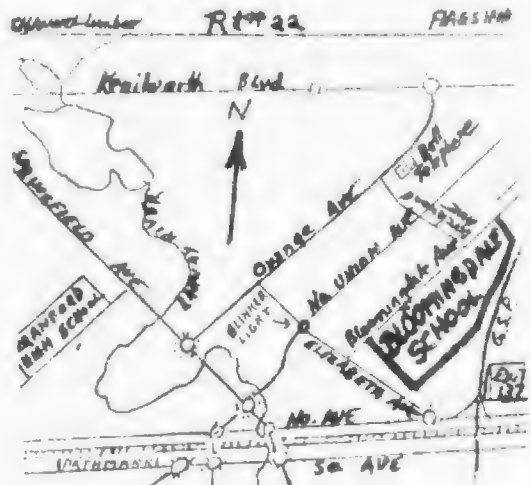 Rt 22
FLAGSHIP
Kenilworth Blvd.
N
Bell
Telephone
SPRINGFIELD
AVE
Orange AVE
No. UNION AVE
Bloomingdale Ave
BLINKER
LIGHT
CRANFORD
HIGH SCHOOL
BLOOMINGDALE
SCHOOL
ELIZABETH AVE
G.S.P.
No. AVE
So. AVE